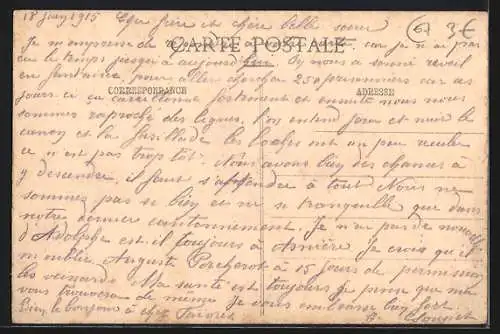 18 juin 1915 Cher frère et chère belle soeur
(67) 3€
CARTE POSTALE
Je m'empresse de car je n'ai pas
eu le temps jusqu'à aujourd'hui. On nous a sonné réveil
en fanfare, pour aller chercher 250 prisonniers car ces
CORRESPONDANCE ADRESSE
jours ci ça cartonne fortement et ensuite nous nous
sommes raproché des lignes. l'on entend jour et nuit le
canon et la fusillade les boches ont un peu reculer
ce n'est pas trop tôt. Nous avons bien des chances à
y descendre, il faut s'attendre à tout Nous ne
sommes pas si bien et ni si tranquille que dans
notre dernier cantonnement. Je n'ai pas de nouvelle
d'Adolphe est-il toujours à Asnière Je crois qu'il
m'oublie. Auguste Porcherot à 15 jours de permission
les veinards. Ma santé est toujours je pense que ma
vous trouvera de même Je vous embrasse bien fort.
Bien le bonjour à chez